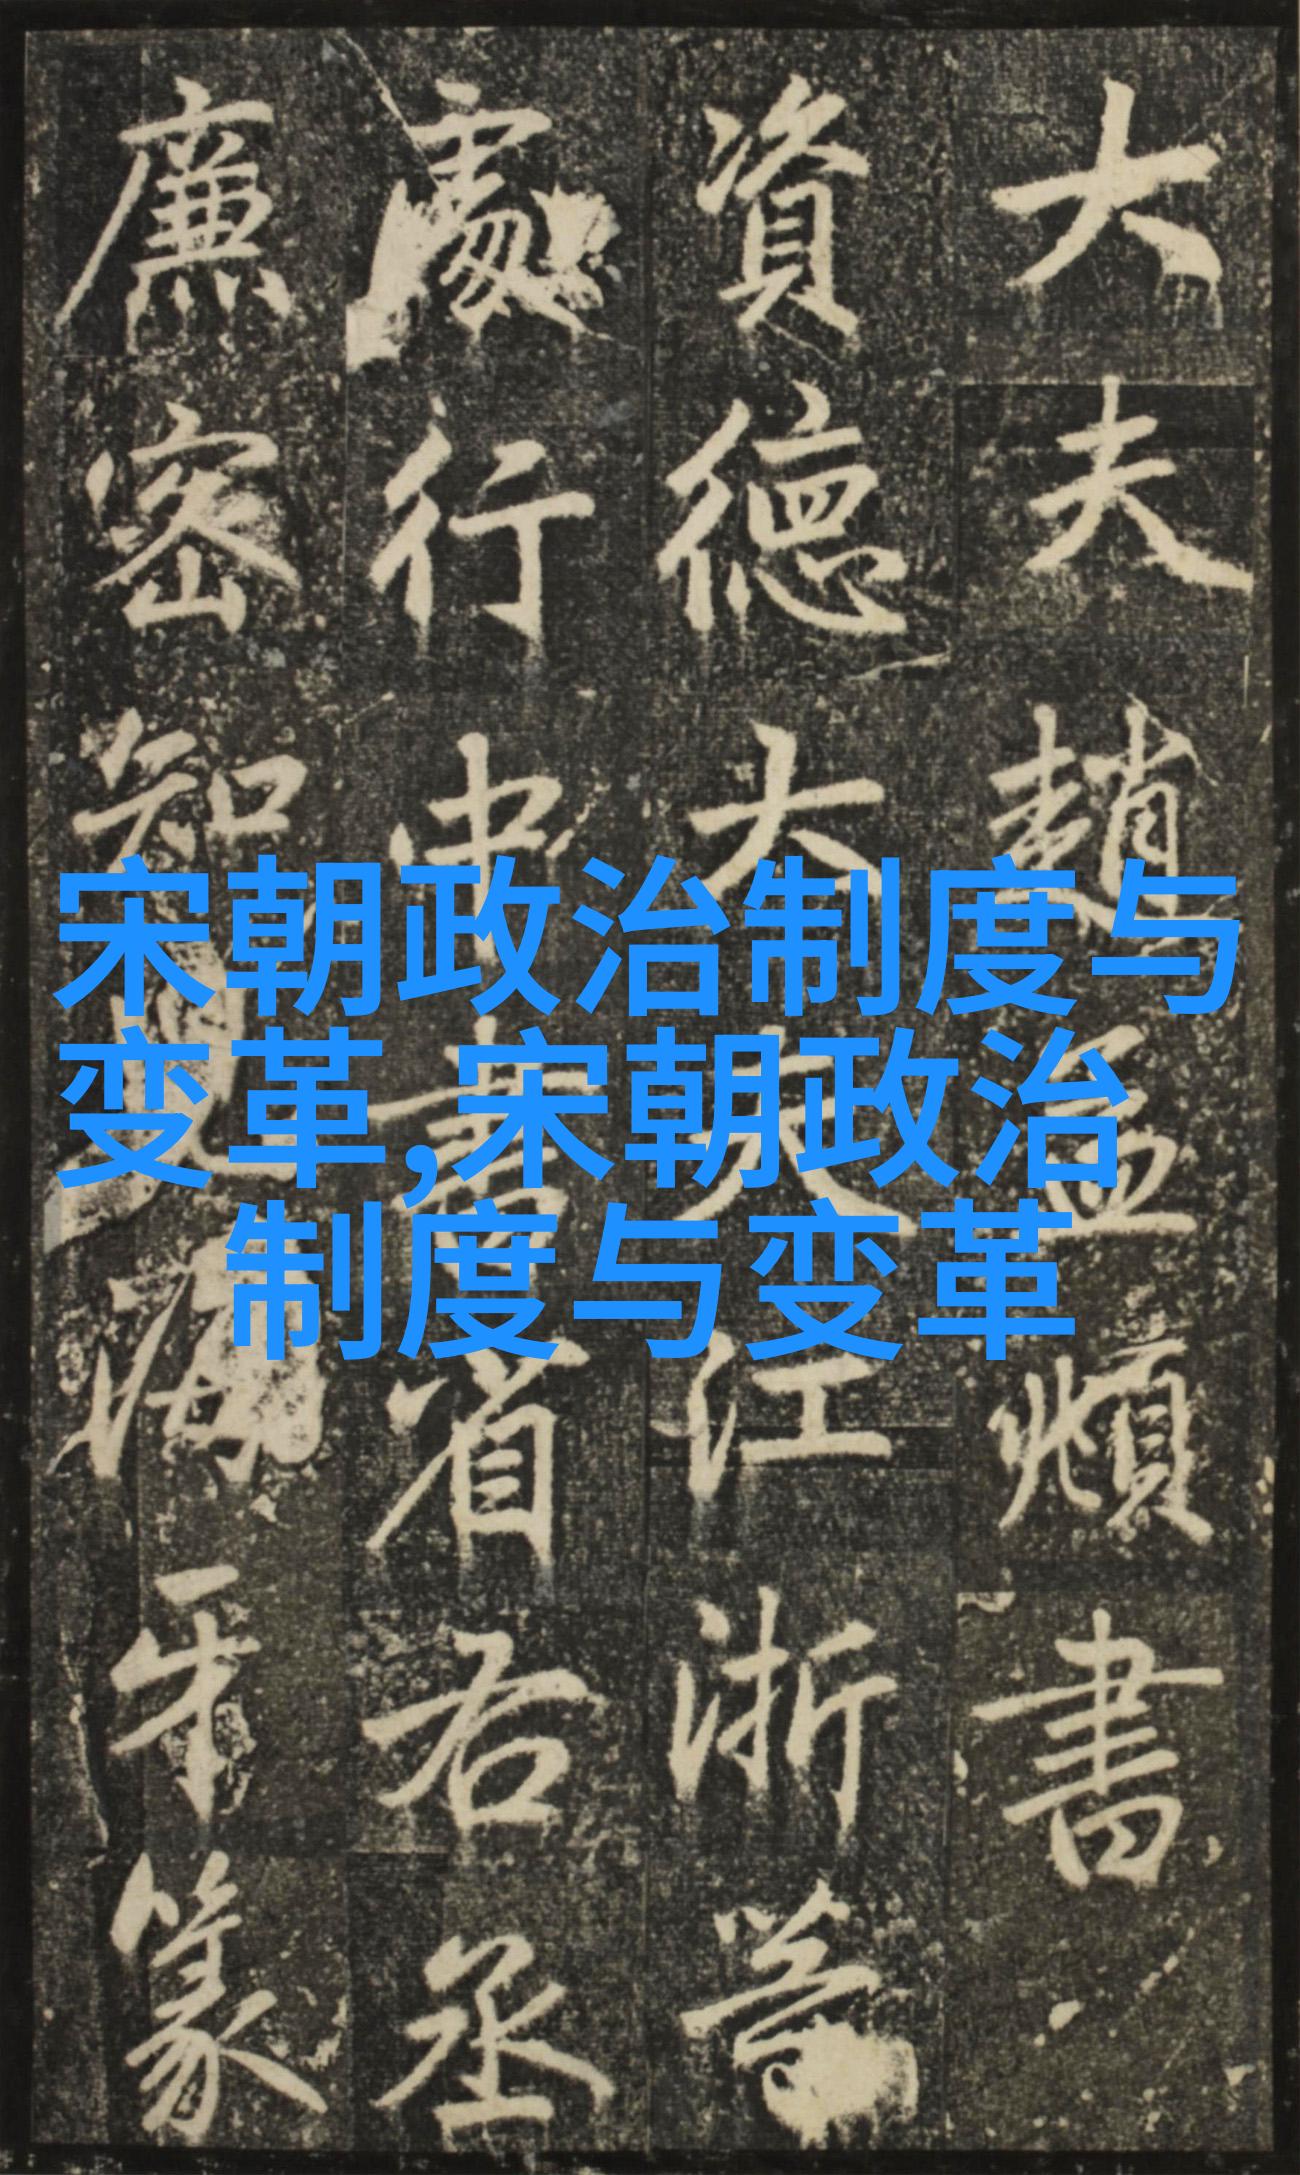 宋朝政治制度与
变革,宋朝政治
制度与变革
大夫趙孟頫書
資德大夫江浙等
處行中書省右丞
廉密知兒海牙篆